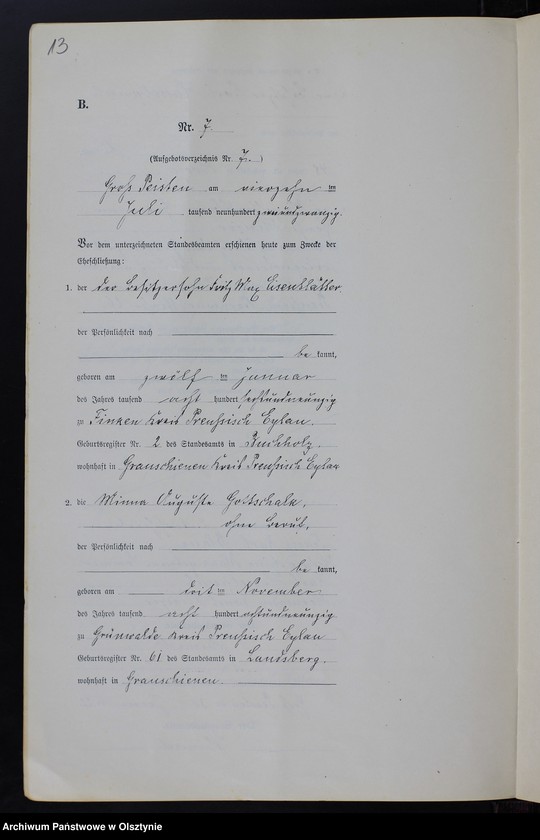 13
B.
Nr. 7.
(Aufgebotsverzeichnis Nr. 7.)
Groß Peisten am vierzehn ten
Juli tausend neunhundert zweiundzwanzig.
Vor dem unterzeichneten Standesbeamten erschienen heute zum Zwecke der
Eheschließung:
1. der der Besitzersohn Fritz Max Eisenblätter
der Persönlichkeit nach
be kannt,
geboren am zwölf ten Januar
des Jahres tausend acht hundert sechsundneunzig
zu Finken Kreis Preußisch Eylau.
Geburtsregister Nr. 2 des Standesamts in Buchholz.
wohnhaft in Grauschienen Kreis Preußisch Eylau
2. die Minna Auguste Gottschalk,
ohne Beruf,
der Persönlichkeit nach
be kannt,
geboren am ten November
des Jahres tausend acht hundert achtundneunzig
zu Grünwalde Kreis Preußisch Eylau
Geburtsregister Nr. 61 des Standesamts in Landsberg.
wohnhaft in Grauschienen
Archiwum Państwowe w Olsztynie